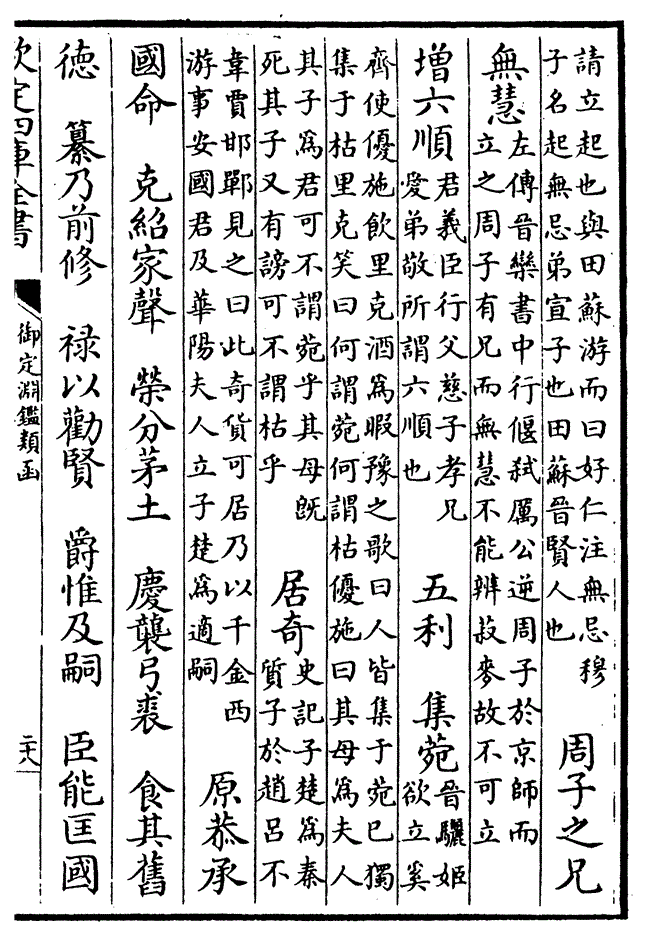 請立起也與田蘇游而曰好仁注無忌穆
子名起無忌弟宣子也田蘇晉賢人也
周子之兄
無慧
左傳晉欒書中行偃弑厲公逆周子於京師而
立之周子有兄而無慧不能辨菽麥故不可立
增六順
君義臣行父慈子孝兄
愛弟敬所謂六順也
五利
集菀
晉驪姬
欲立奚
齊使優施飲里克酒為暇豫之歌曰人皆集于菀已獨
集于枯里克笑曰何謂菀何謂枯優施曰其母為夫人
其子為君可不謂菀乎其母既
死其子又有謗可不謂枯乎
居奇
史記子楚為秦
質子於趙呂不
韋賈邯鄲見之曰此奇貨可居乃以千金西
游事安國君及華陽夫人立子楚為適嗣
原恭承
國命 克紹家聲 榮分茅土 慶襲弓裘 食其舊
徳 纂乃前修 禄以勸賢 爵惟及嗣 臣能匡國
欽定四庫全書
御定淵鑑類函
二十八